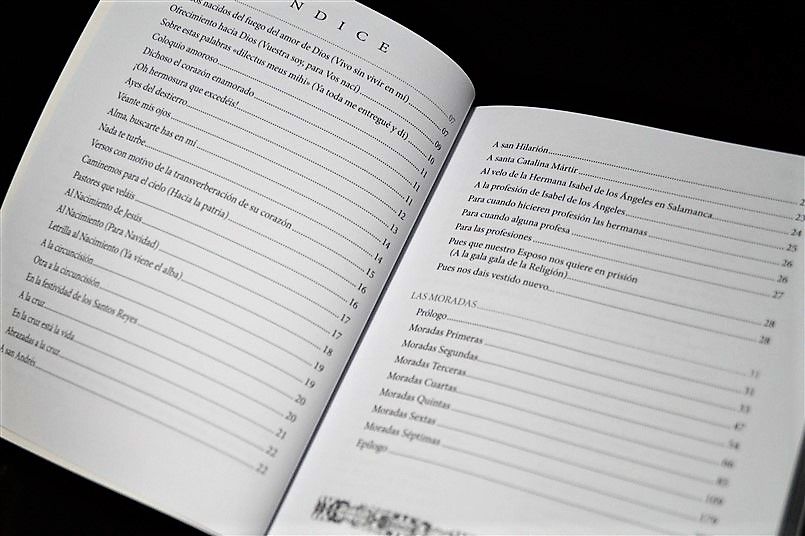 NDICE
nacidos del fuego del amor de Dios (Vivo sin vivir en mí) 07
Ofrecimiento hacia Dios (Vuestra soy, para Vos nací) 07
Sobre estas palabras «dilectus meus mihi» (Ya toda me entregué y di) 09
Coloquio amoroso 10
Dichoso el corazón enamorado 11
¡Oh hermosura que excedéis! 11
Ayes del destierro 11
Véante mis ojos 12
Alma, buscarte has en mí 13
Nada te turbe 14
Versos con motivo de la transverberación de su corazón 14
Caminemos para el cielo (Hacia la patria) 15
Pastores que veláis 16
Al Nacimiento de Jesús 16
Al Nacimiento (Para Navidad) 17
Letrilla al Nacimiento (Ya viene el alba) 17
A la circuncisión 18
Otra a la circuncisión 19
En la festividad de los Santos Reyes 19
A la cruz 20
En la cruz está la vida 20
Abrazadas a la cruz 21
A san Andrés 22
22
A san Hilarión
A santa Catalina Mártir 23
Al velo de la Hermana Isabel de los Ángeles en Salamanca 24
A la profesión de Isabel de los Ángeles 25
Para cuando hicieren profesión las hermanas 26
Para cuando alguna profesa 26
Para las profesiones 27
Pues que nuestro Esposo nos quiere en prisión
(A la gala gala de la Religión) 28
Pues nos dais vestido nuevo 28
LAS MORADAS 31
Prólogo 31
Moradas Primeras 33
Moradas Segundas 47
Moradas Terceras 54
Moradas Cuartas 66
Moradas Quintas 85
Moradas Sextas 109
Moradas Séptimas 179
Epílogo